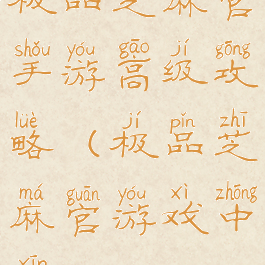 极品芝麻官
shǒu yóu gāo jí gōng
手游高级攻
lüè jí pǐn zhī
略（极品芝
má guān yóu xì zhōng
麻官游戏中
xīn